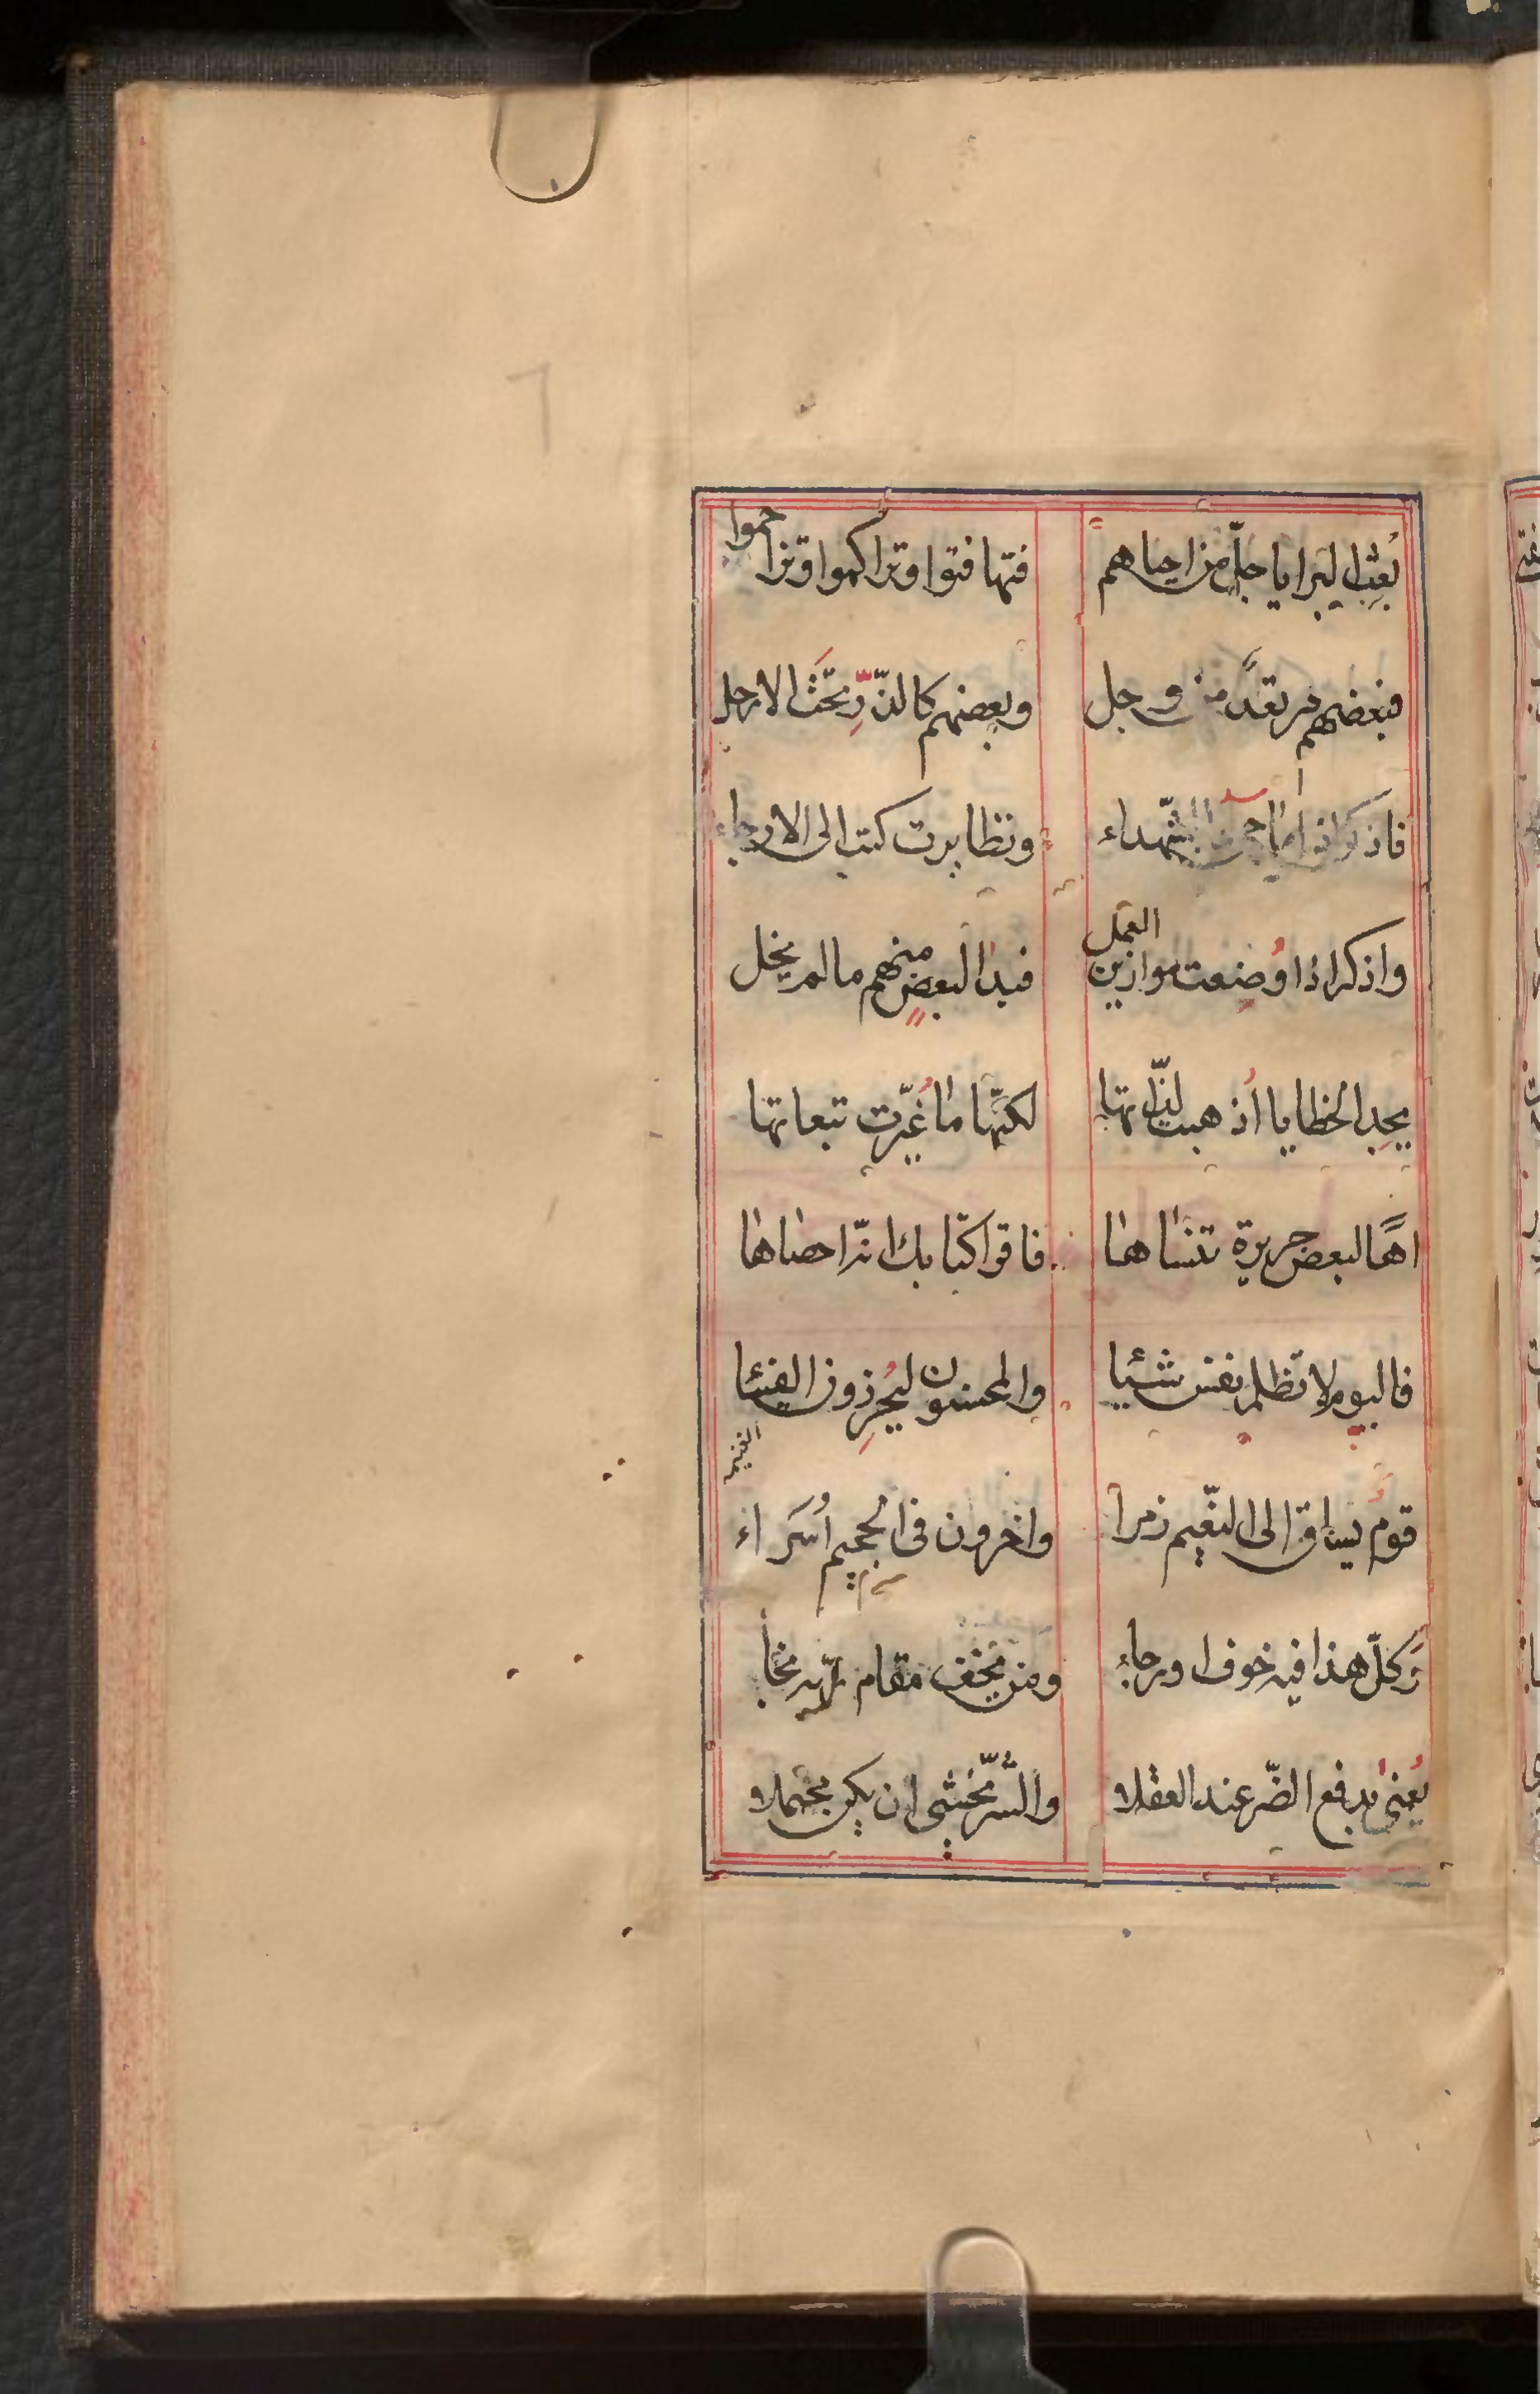 ٦
بُعث البرايا جلّ من احياهم فتهافتوا وتراكموا وتزاحموا
فبعضهم مرتعد من وجل وبعضهم كالذّرِّ تحتَ الارجل
فاذكر اذا ما جئ بالشّهداء وتطايرت كتب الى الارجاء
واذكر اذا وُضعت موازين العمل فبدا لبعضٍ منهم ما لم يخل
يجد الخطايا أُذهبت لذّاتها لكنّها ما غُيّرت تبعاتها
اهًا لبعض جريرة تنساها فاقرا كتابك انّه احصاها
فاليوم لا تظلم نفس شئيا والمحسنون ليُحرِزون الفيئا
الغنيم
قوم يساق الى النّعيم زمرا واخرون فى الجحيم أُسَراء
وَكلّ هذا فيه خوف ورجاءُ ومن يخف مقام ربّه نجا
يُعنىٰ بدفع الضّر عند العقلاء والشّرّ يخشى ان يكن محتملا